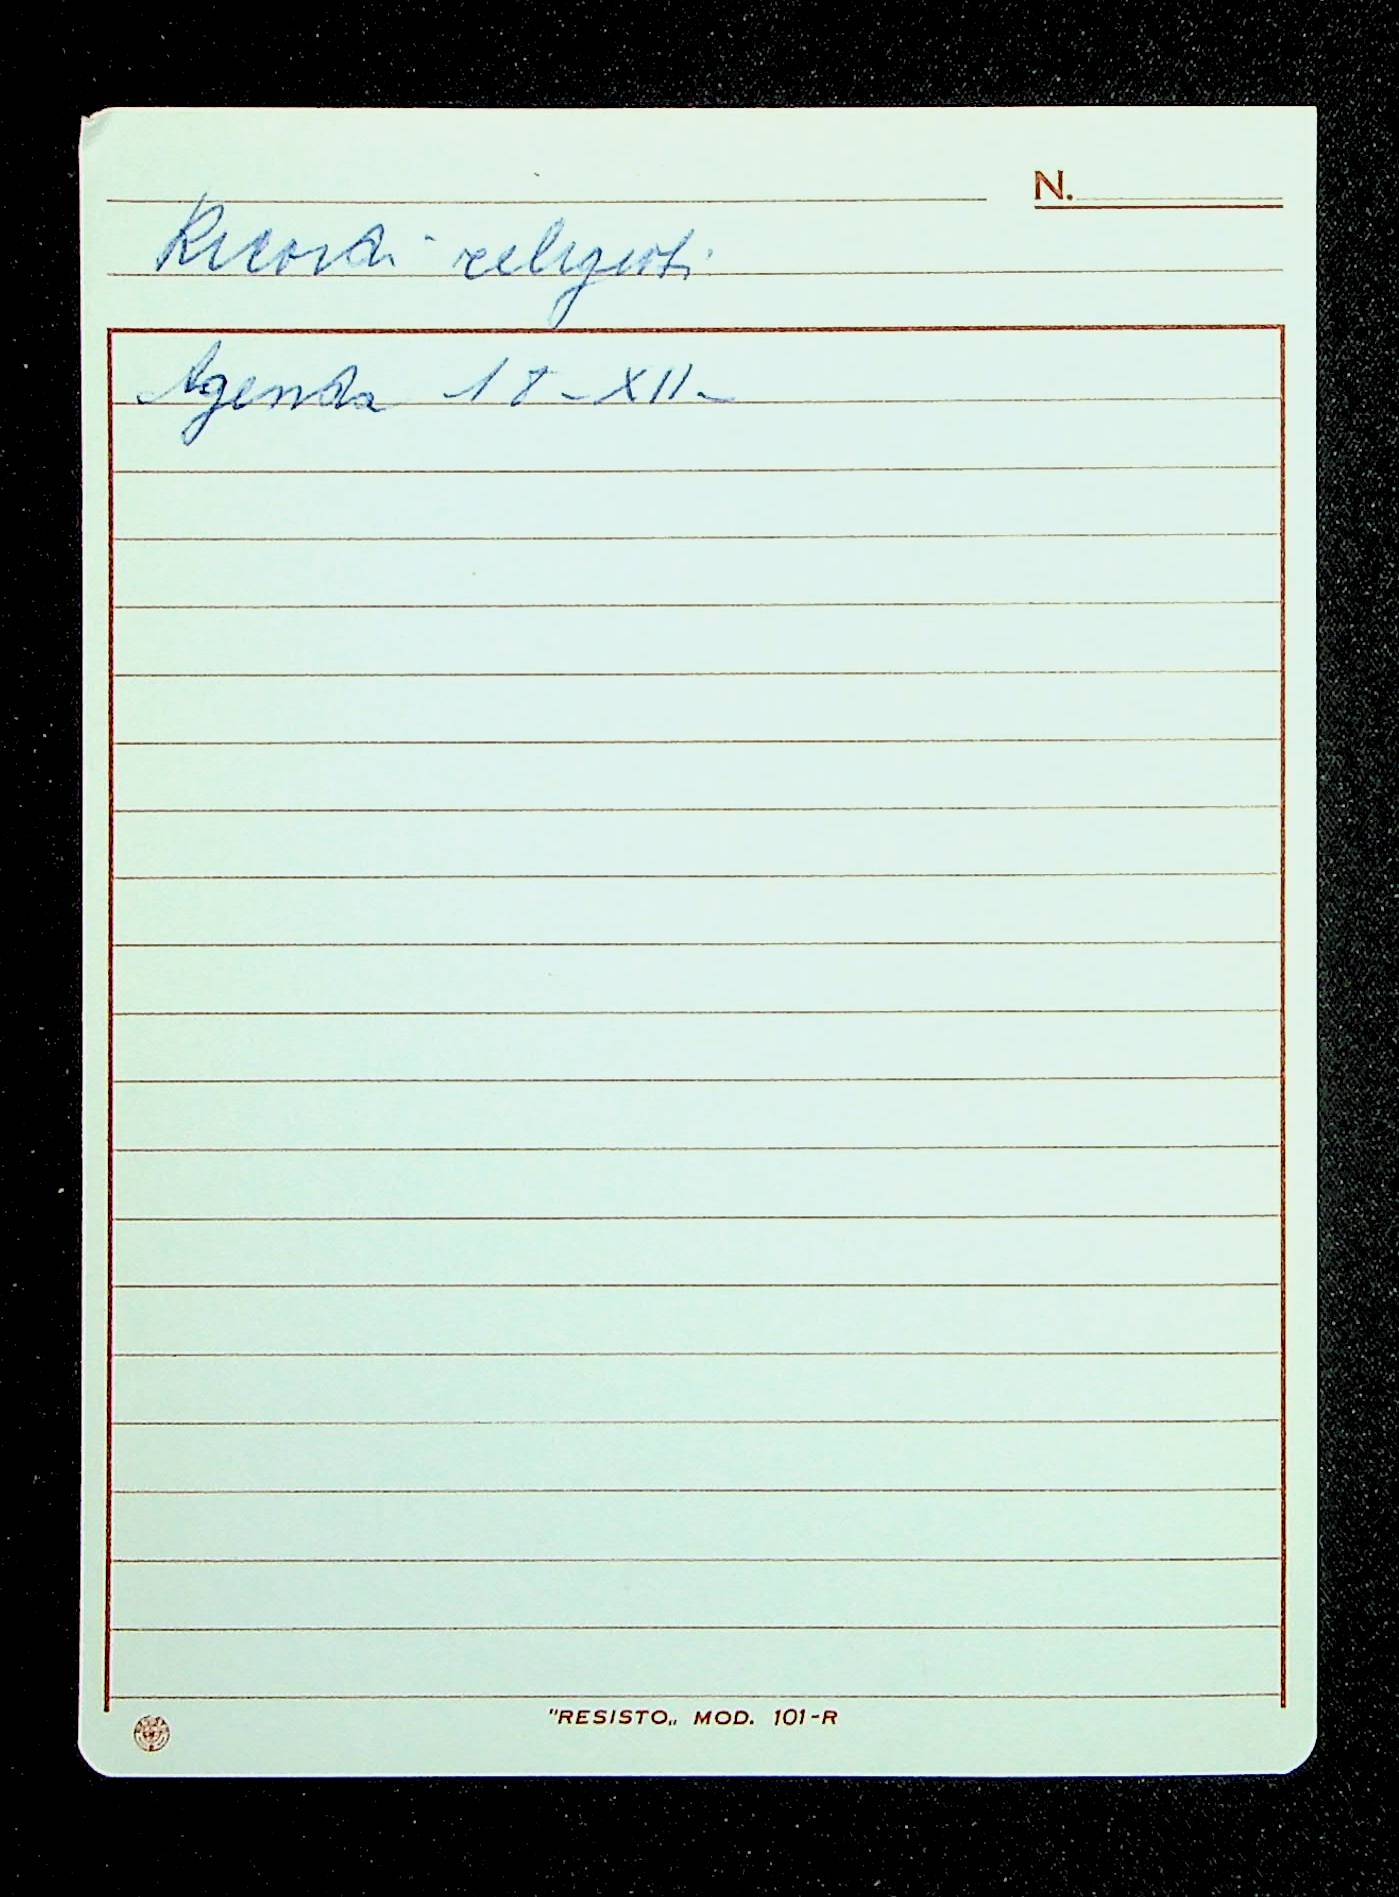 N.
Ricordi religiosi
Agenda 18-XII-
"RESISTO„ MOD. 101-R